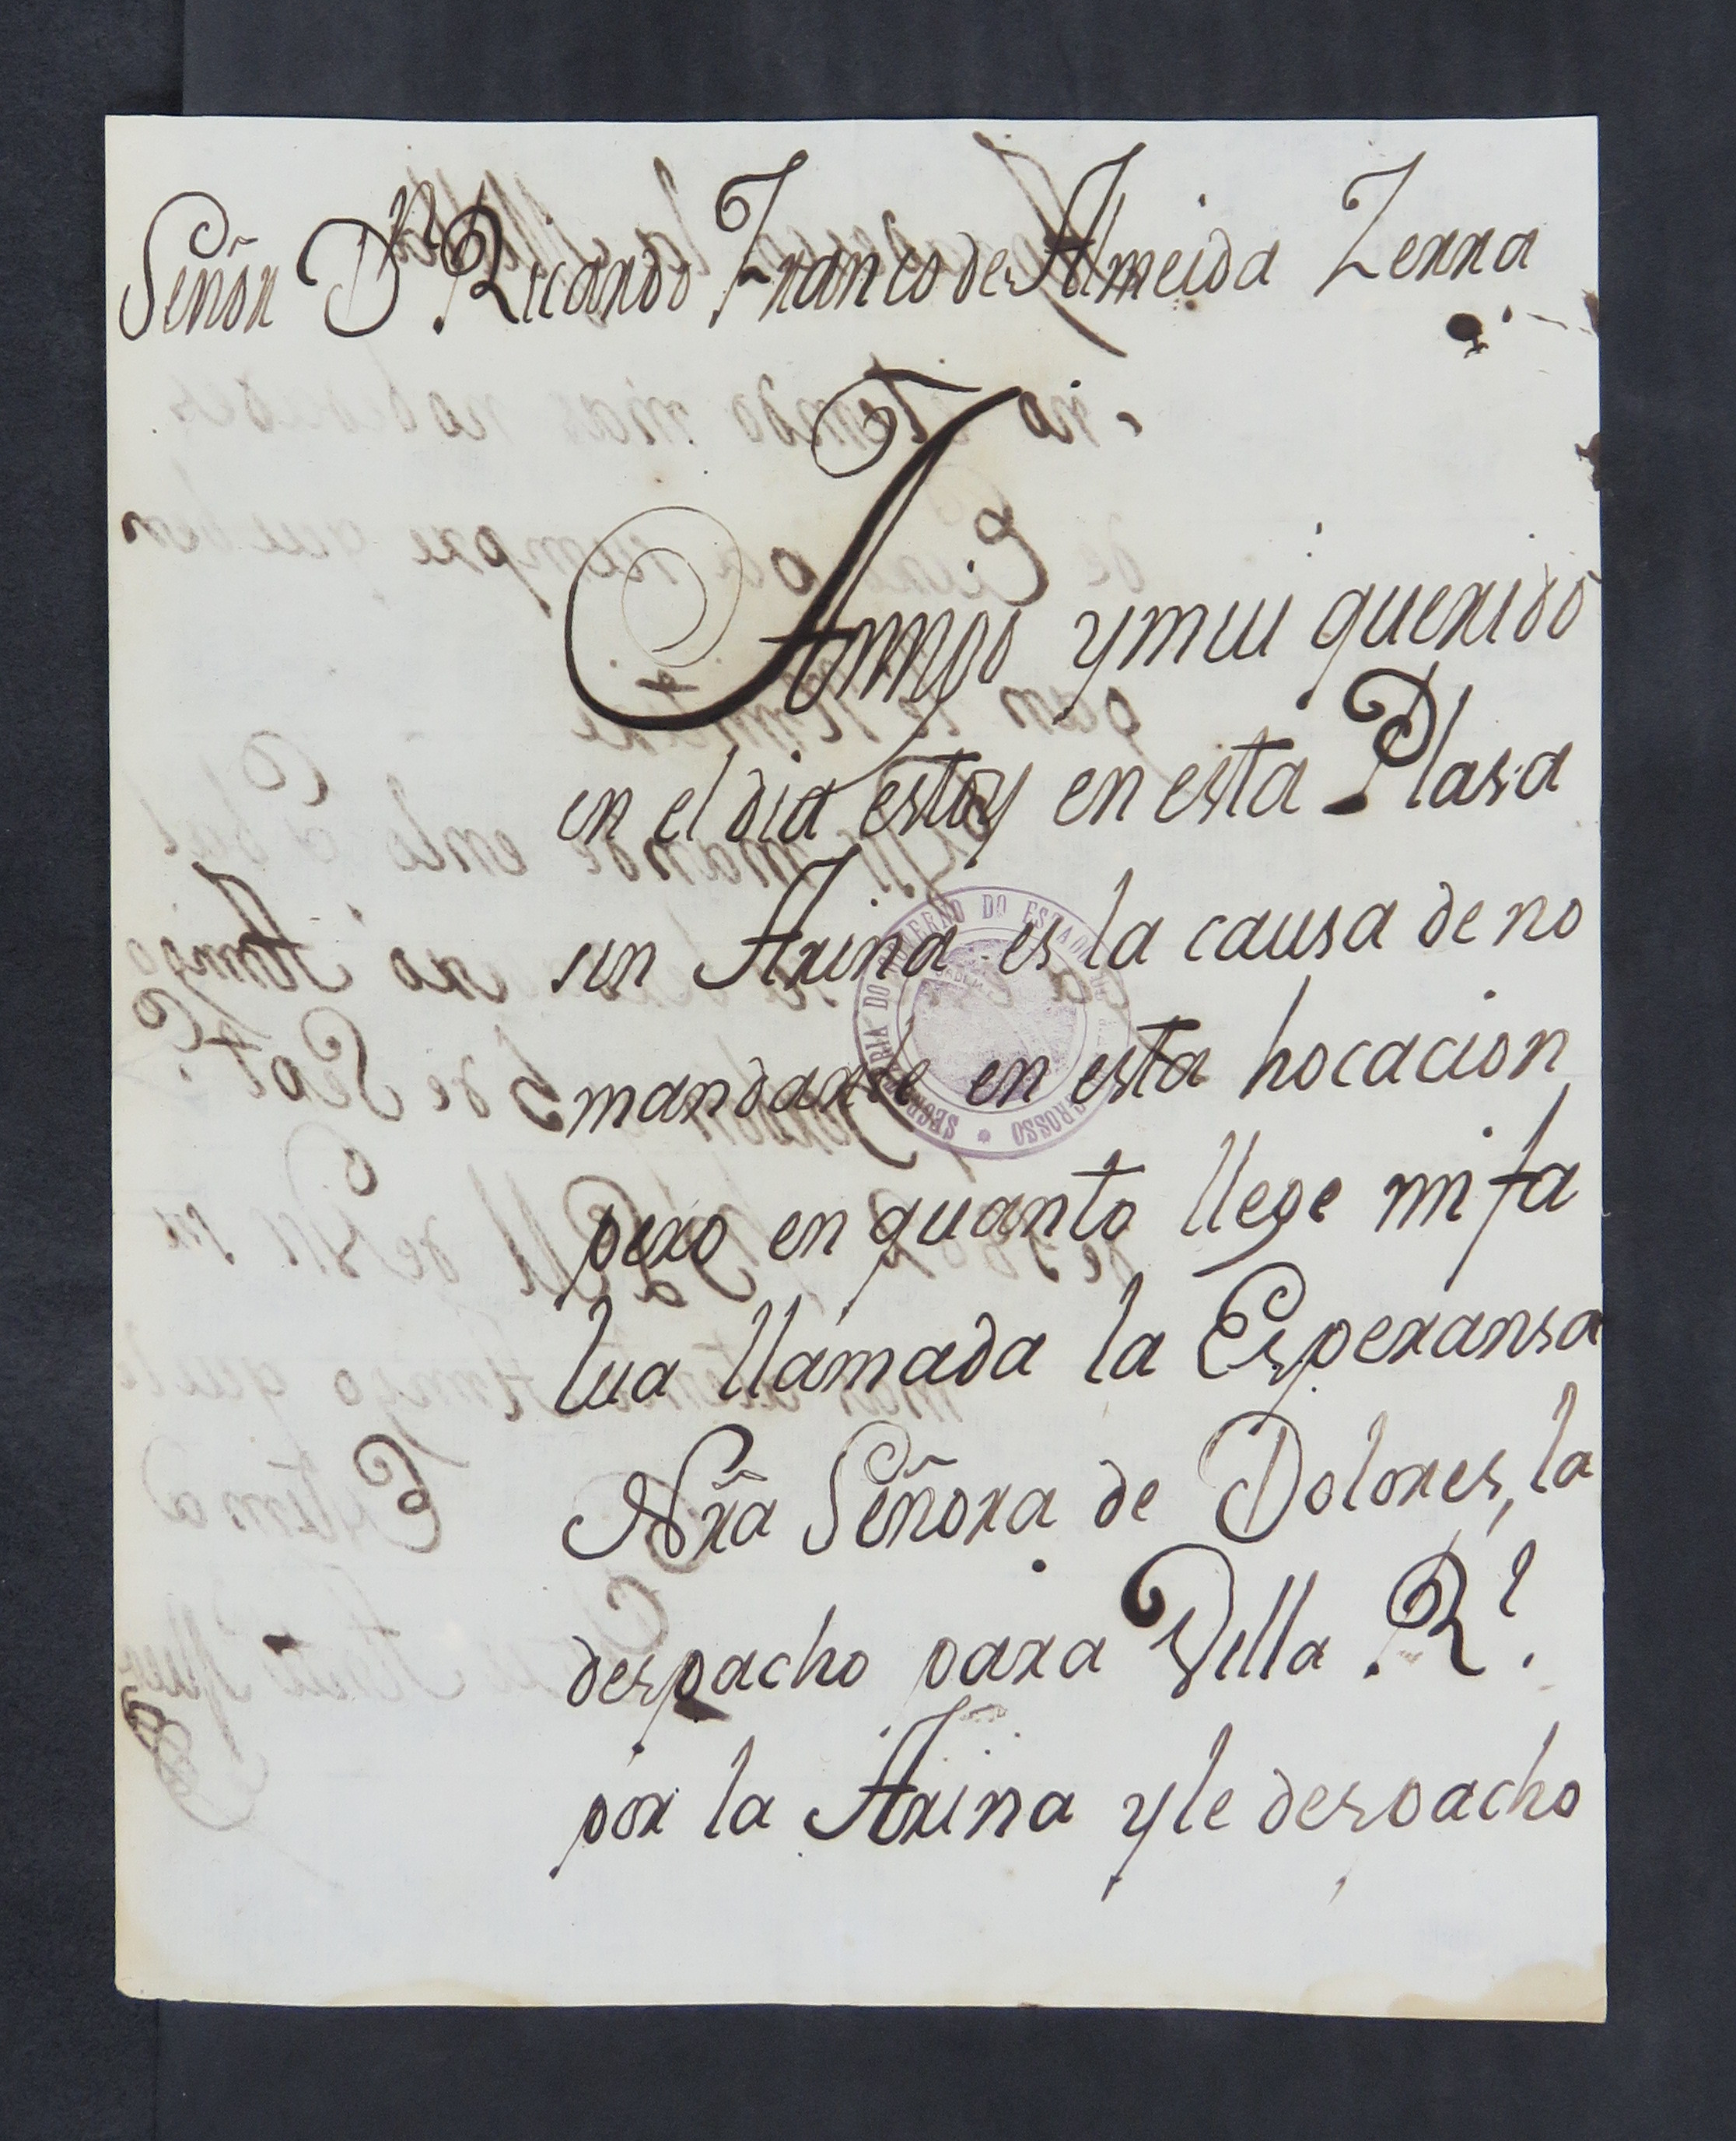 Señor Dn Ricardo Franco de Almeida Zerra
Amigo y mui querido
en el dia estoy en esta Plasa
sin Arina es la causa de no
mandarle en esta hocacion
pero en quanto llege mi fa
lua llamada la Esperansa
Nrã Señora de Dolores, la
despacho para Villa Rl.
por la Arina y le despacho
SECRETARIA DO GOVERNO DO ESTADO GROSSO